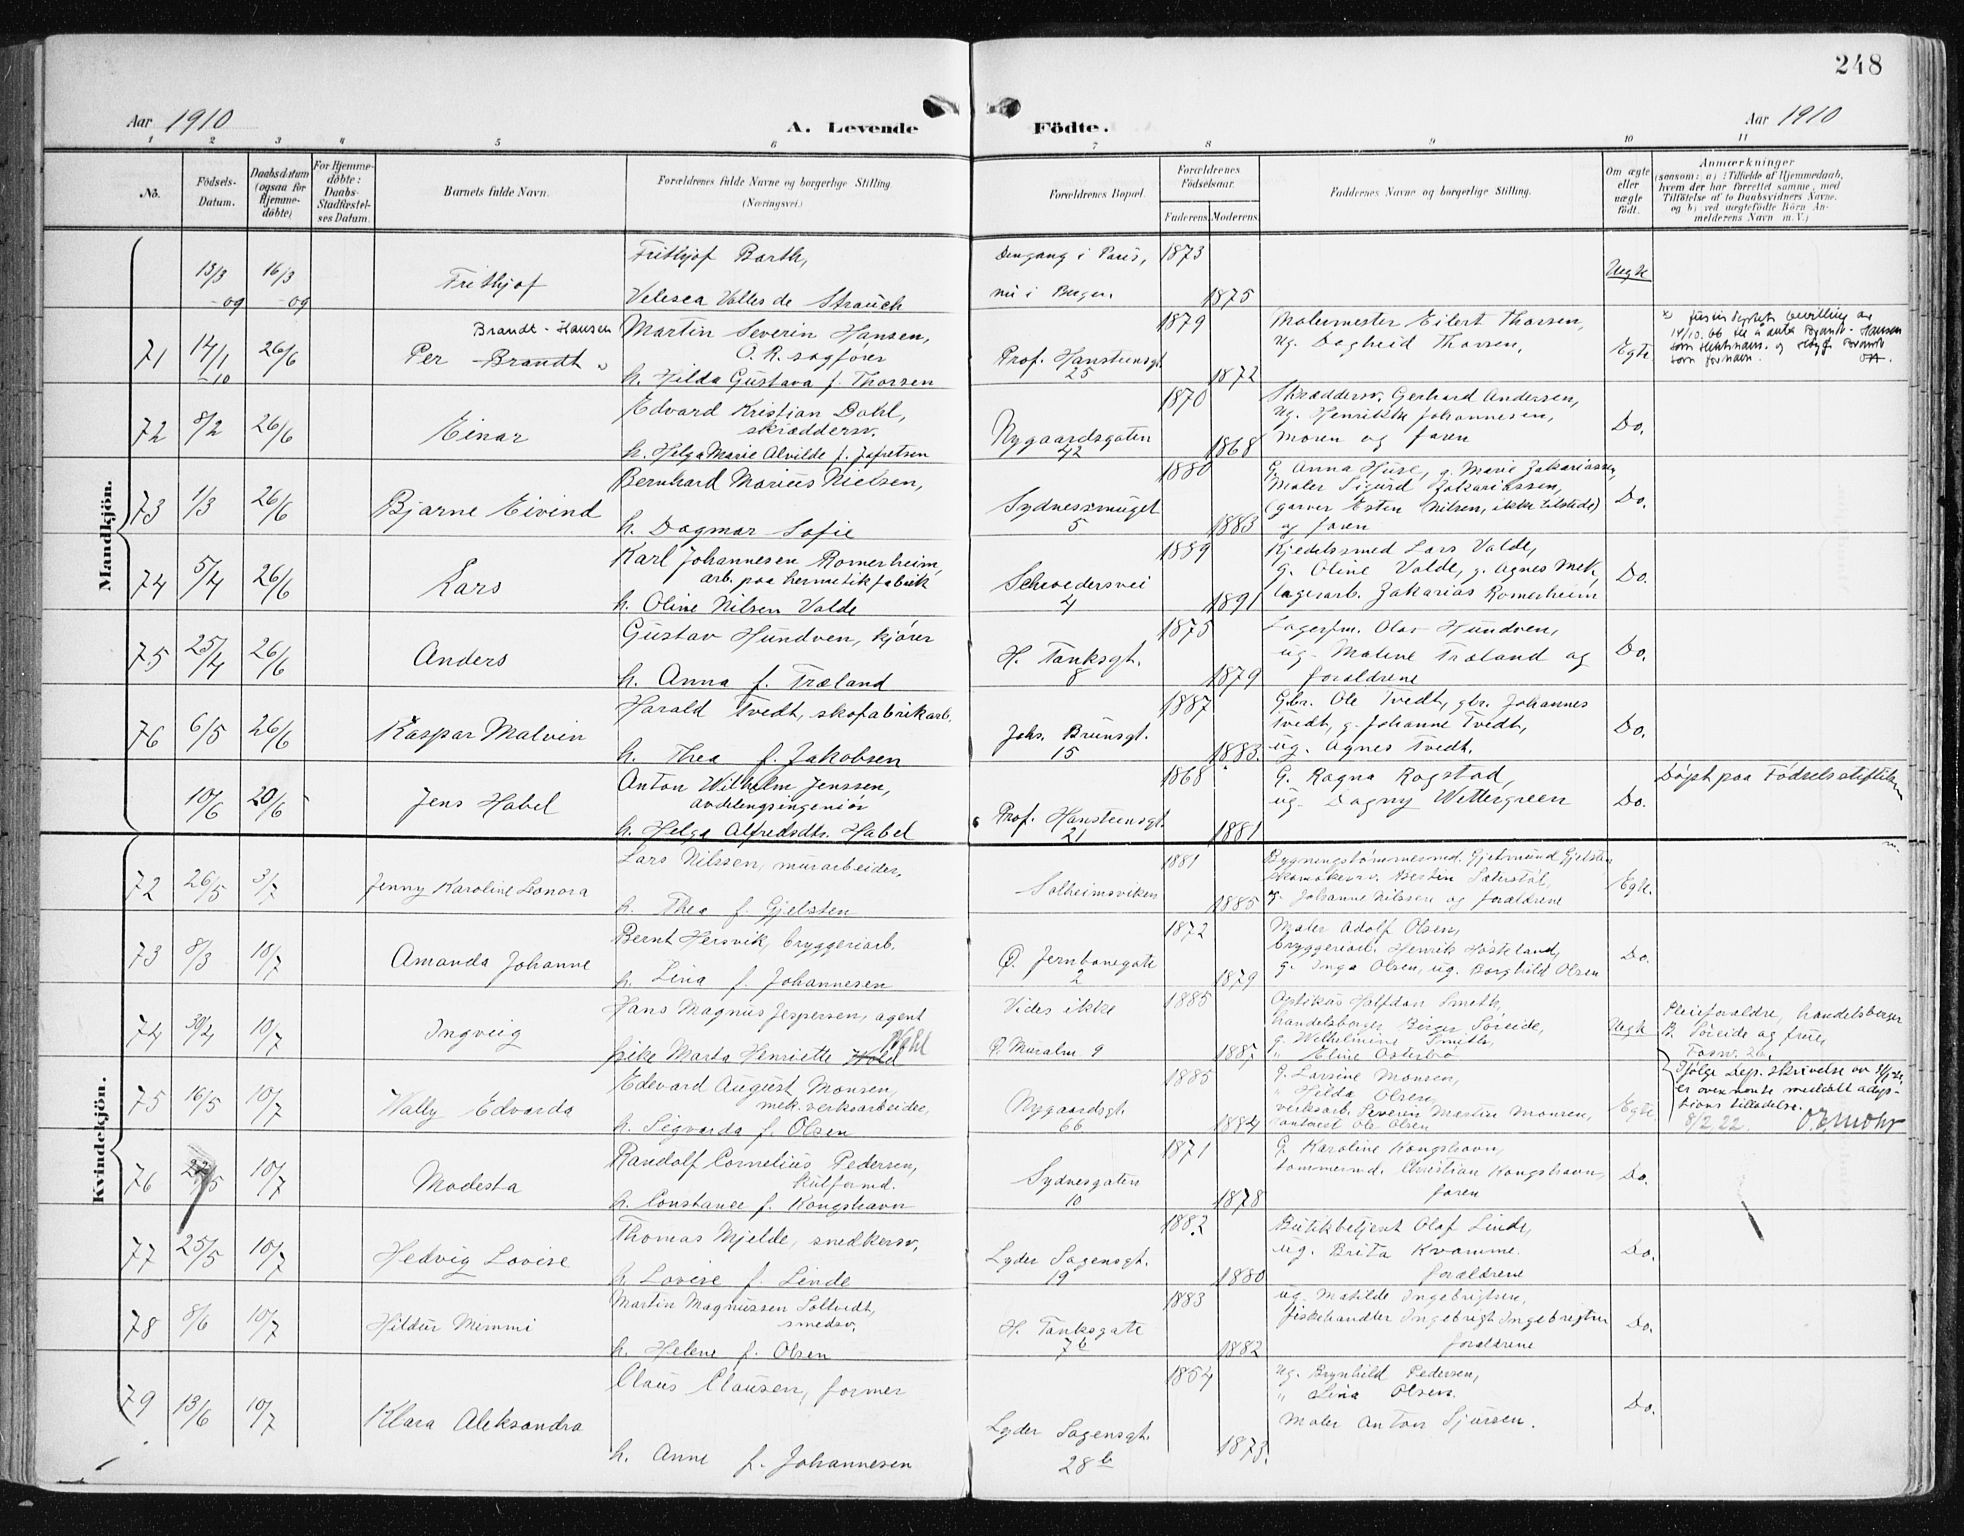 248
Aar 1910
A. Levende
Födte.
Aar 1910
1 2 3 4 5 6 7 8 9 10 11
No.
Födsels-
Datum.
Daabsdatum
(ogsaa for
Hjemme-
døbte)
For Hjemme-
døbte:
Daabs-
Stadfæstel-
ses Datum.
Barnets fulde Navn.
Forældrenes fulde Navne og borgerlige Stilling.
(Næringsvei.)
Forældrenes Bopæl.
Forældrenes
Födselsaar.
Faderens. Moderens.
Faddernes Navne og borgerlige Stilling.
Om ægte
eller
uægte
født.
Anmærkninger
(saasom: a) i Tilfælde af Hjemmedaab,
hvem der har forrettet samme, med
Tilföielse af to Daabsvidners Navne,
og b) ved uægtefödte Börn An-
melderens Navn m. V.)
Mandkjön.
13/3 -09
16/3 -09
Frithjof
Frithjof Barth,
Velesca Valles de Strauch
Dengang i Paris,
nu i Bergen.
1873
1875
Uegte
71
14/1 -10
26/6
Brandt-Hansen
Per Brandt
Martin Severin Hansen,
O. R. sagfører
h. Hilda Gustava f. Thorsen
Prof. Hansteensgt.
25
1879
1872
Malermester Eilert Thorsen,
ug. Dagheid Thorsen,
Egte.
14/10. 66
som slektsnavn. og
som fornavn.
72
8/2
26/6
Einar
Edvard Kristian Dahl,
skræddersv.
h. Helga Marie Alvilde f. Jofretsen
Nygaardsgaten
42
1870
1868
Skræddersv. Gerhard Andersen,
ug. Henrikke Johannesen,
moren og faren
Do.
73
1/3
26/6
Bjarne Eivind
Bernhard Marius Nielsen,
h. Dagmar Sofie
Sydnessmuget
5
1880
1883
G. Anna Huse, g. Marie Zakariassen,
Maler Sigurd Zakariassen,
(garver Esten Nilsen, ikke tilstede)
og faren
Do.
74
5/4
26/6
Lars
Karl Johannesen Romerheim,
arb. paa hermetikfabrik
h. Oline Nilsen Valde
Schwedersvei
4
1889
1891
Kjedelsmed Lars Valde,
g. Oline Valde, g. Agnes Mek,
lagerarb. Zakarias Romerheim
Do.
75
25/4
26/6
Anders
Gustav Hundven, kjører
h. Anna f. Træland
H. Tanksgt.
8
1875
1879
Lagerfm. Olav Hundven,
ug. Malene Træland og
forældrene
Do.
76
6/5
26/6
Kaspar Malvin
Harald Tvedt, skofabrikarb.
h. Thea f. Jakobsen
Johs. Brunsgt.
15
1887
1883.
Gbr. Ole Tvedt, gbr. Johannes
Tvedt, g. Johanne Tvedt,
ug. Agnes Tvedt.
Do.
10/6
20/6
Jens Habel
Anton Wilhelm Jenssen,
avdelingsingeniør
h. Helga Alfredsdtr. Habel
Prof. Hansteensgt.
21
1868
1881
G. Ragna Rogstad,
ug. Dagny Wettergreen
Do.
Døpt paa Fødselsstiftelsen
Kvindekjön.
72
26/5
3/7
Jenny Karoline Leonora
Lars Nilssen, murarbeider,
h. Thea f. Gjelsten
Solheimsviken
1881
1885
Bygningstømmermd. Gjermund Gjelsten
Skomakersv. Bertin Sæterstøl,
g. Johanne Nilssen og forældrene
Egte.
73
8/3
10/7
Amanda Johanne
Bernt Hersvik, bryggeriarb.
h. Lina f. Johannesen
Ø. Jernbanegate
2
1872
1879
Maler Adolf Olsen,
bryggeriarb. Henrik Høskeland,
g. Inga Olsen, ug. Borghild Olsen
Do.
74
30/4
10/7
Ingveig
Hans Magnus Jespersen, agent
pike Marta Henriette Wold
Vides ikke
Ø. Muralm. 9
1885
1887
Optikus Halfdan Smeth,
handelsborger Birger Søreide,
g. Wilhelmine Smeth,
" Eline Osterbø
Uegte
Pleieforældre, handelsborger
B. Søreide og frue,
75
16/5
10/7
Wally Edvarda
Edevard August Monsen,
mek. verksarbeider,
h. Sigvarda f. Olsen
Nygaardsgt.
66
1885
1884
g. Larsine Monsen,
" Hilda Olsen,
verksarb. Severin Martin Monsen,
Ole Olsen
Egte.
Ifølge Dep. skrivelse av
er ovennævnte meddelt adop-
tions tilladelse.
8/2. 22.
76
22/5
10/7
Modesta
Randolf Cornelius Pedersen,
kulformd.
h. Constance f. Kongshavn
Sydnesgaten
10
1871
1878
G. Karoline Kongshavn,
tømmermd. Christian Kongshavn,
faren
Do.
77
25/5
10/7
Hedvig Lovise
Thomas Mjelde, snedkersv.
h. Lovise f. Linde
Lyder Sagensgt.
19
1882
1880
Butikbetjent Olaf Linde,
ug. Brita Kvamme.
forældrene
Do.
78
8/6
10/7
Hildur Mimmi
Martin Magnussen Soltvedt,
smedsv.
h. Helene f. Olsen
H. Tanksgate
7b
1883
1882
ug. Matilde Ingebrigtsen,
fiskehandler Ingebrigt Ingebrigtsen
forældrene
Do.
79
13/6
10/7
Klara Aleksandra
Claus Clausen, former
h. Anne f. Johannesen
Lyder Sagensgt.
28b
1864
1873.
ug. Brynhild Pedersen,
" Lina Olsen.
Maler Anton Sjursen.
Do.